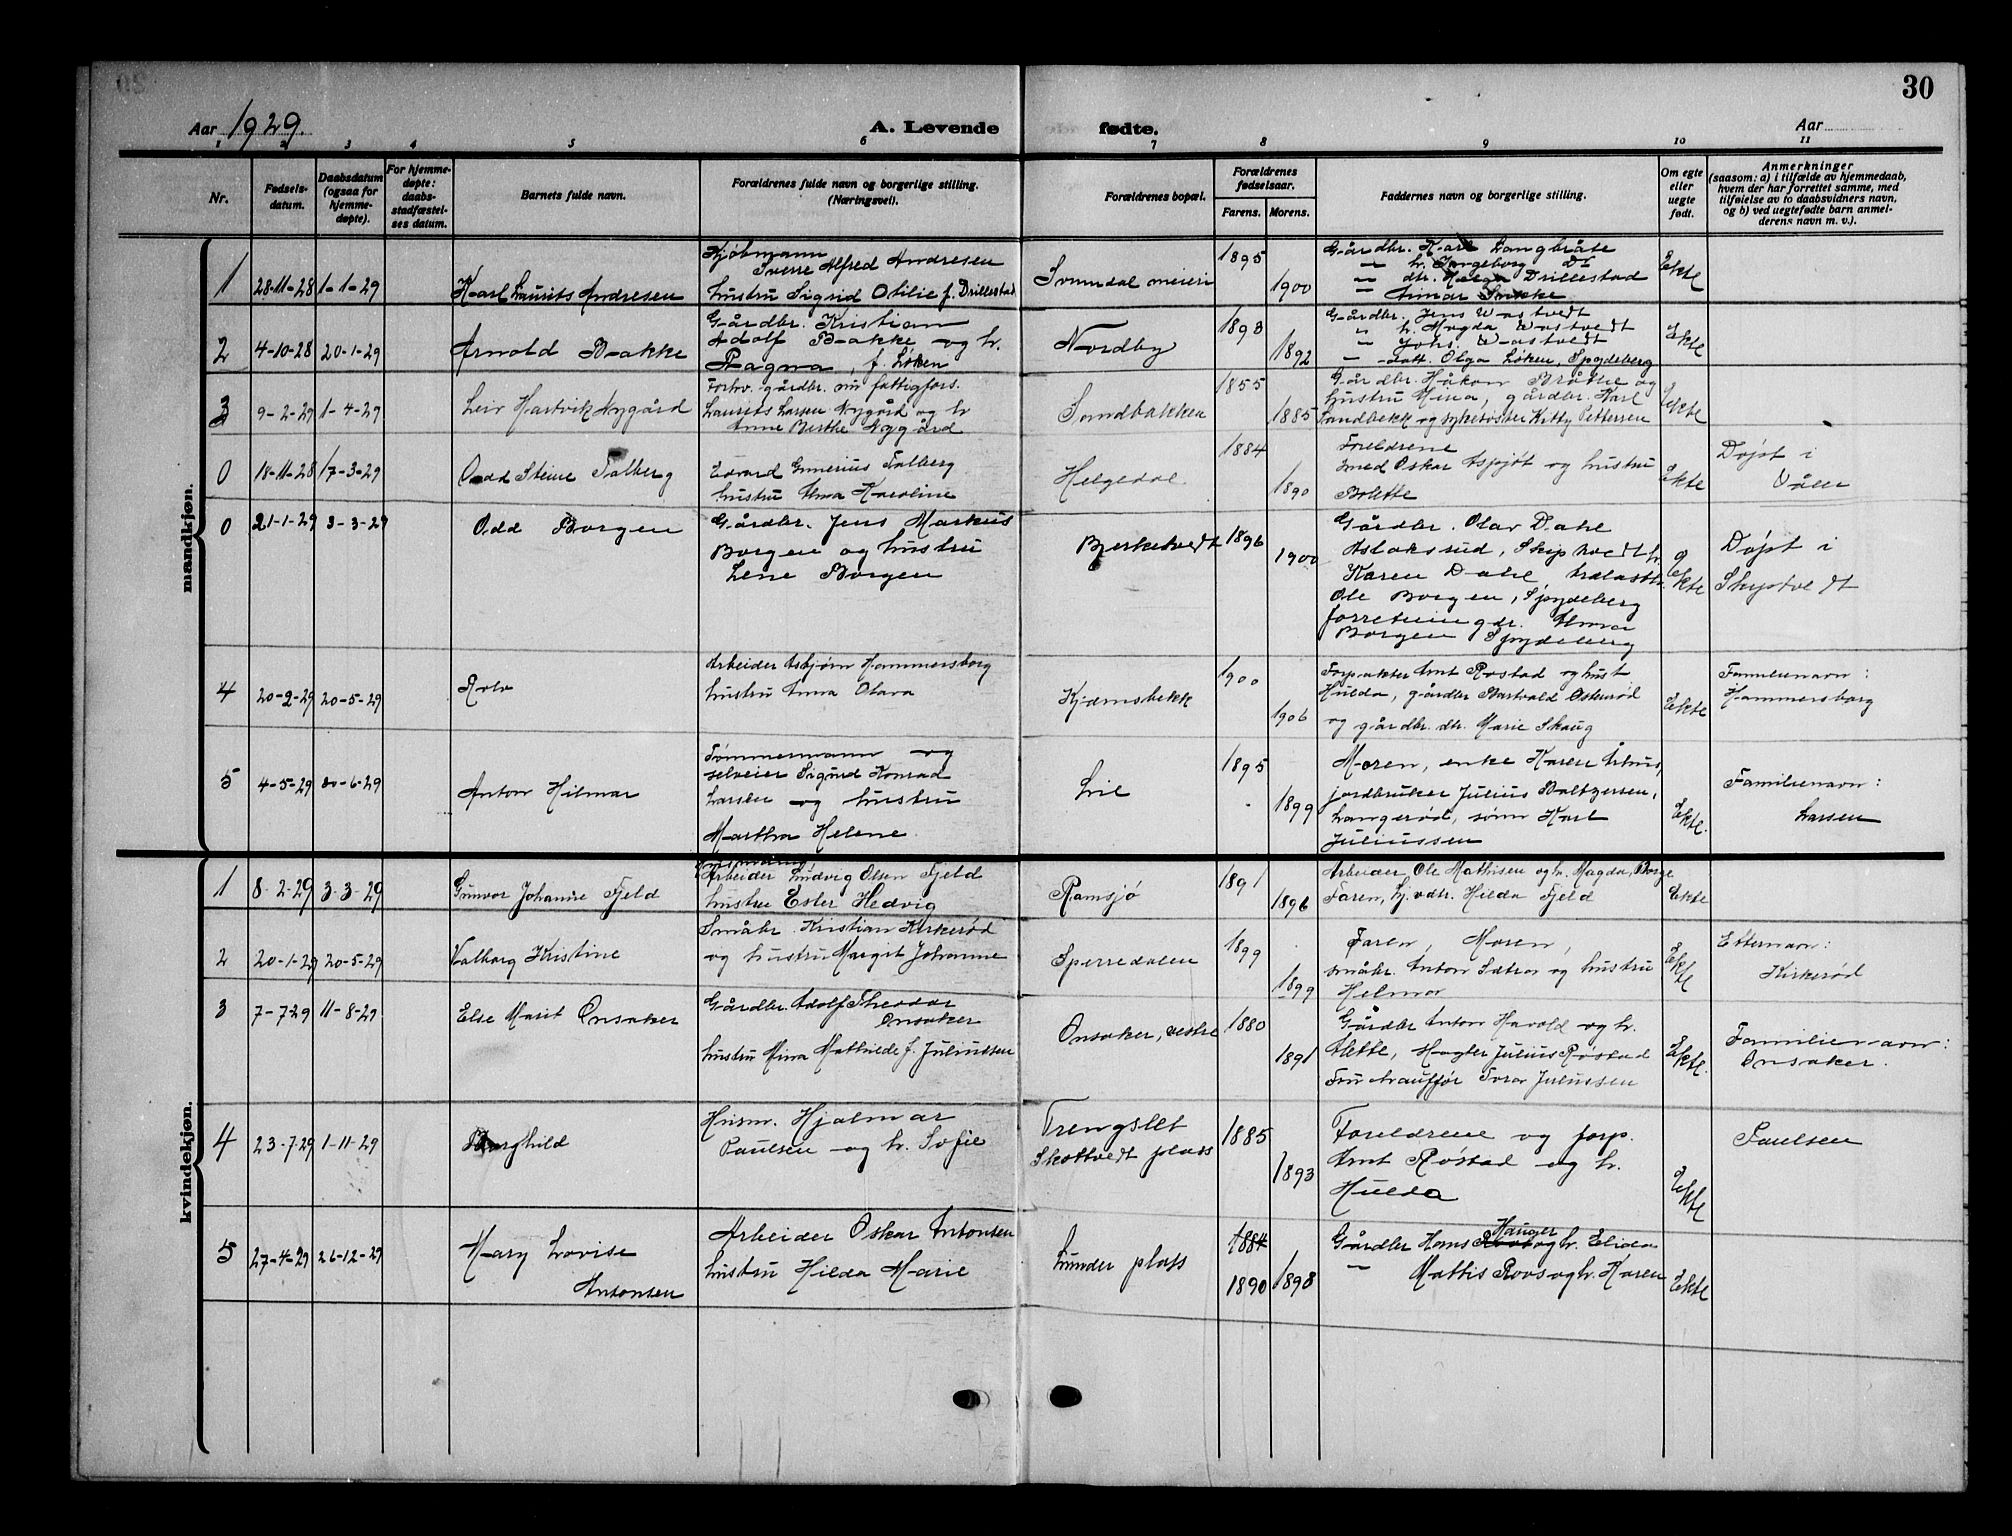 30
Aar 1929.
A. Levende fødte.
Aar
1 2 3 4 5 6 7 8 9 10 11
Nr.
Fødsels-
datum.
Daabsdatum
(ogsaa for
hjemme-
døpte).
For hjemme-
døpte:
daabs-
stadfæstel-
ses datum.
Barnets fulde navn.
Forældrenes fulde navn og borgerlige stilling.
(Næringsvei).
Forældrenes bopæl.
Forældrenes
fødselsaar.
Farens. Morens.
Faddernes navn og borgerlige stilling.
Om egte
eller
uegte
født.
Anmerkninger
(saasom: a) i tilfælde av hjemmedaab,
hvem der har forrettet samme, med
tilføielse av to daabsvidners navn,
og b) ved uegtefødte barn anmel-
derens navn m. v.).
mandkjøn.
1
28-11-28
1-1-29
Karl Laurits Andresen
Kjøbmann
Sverre Alfred Andresen
hustru Sigrid Otilie f. Drillestad
Sonndal meieri
1895
1900
Gårdbr. Karl Langbråte
" h. Ingeborg Do
" dtr. Helga Drillestad
" Annar
Ekte
2
4-10-28
20-1-29
Arnold Bakke
Gårdbr. Kristian
Adolf Bakke og h.
Ragna, f. Løken
Nordby
1893
1892
Gårdbr. Jens Wastvedt
" h. Magda Wastvedt
" Johs. Wastvedt
" datt. Olga Løken, Spydeberg
Ekte
3
9-2-29
1-4-29
Leiv Hartvik Nygård
Forhv. gårdbr. nu fattigfors.
Laurits Larsen Nygård og h
Anne Berthe Nygård
Sandbakken
1855
1885
Gårdbr. Håkon Bråthe og
hustru Mina, gårdbr. Karl
Sandbekk og sykesøster Kitty Pettersen
Ekte
0
18-11-28
17-3-29
Odd Steine Falberg
Edvard Gunerius Falberg
hustru Anna Karoline
Helgedal
1884
1890
Foreldrene
smed Oskar Aspjøt og hustru
Bolette
Ekte
Døpt i
Våler
0
21-1-29
3-3-29
Odd Borgen
Gårdbr. Jens Markus
Borgen og hustru
Lene Borgen
Bjerketvedt
1896
1900
Gårdbr. Olav Dahl
Aslaksrud, Skiptvedt h.
Karen Dahl, trælastb.
Ole Borgen, Spydeberg
forretning dr. Anna
Borgen Spydeberg
Ekte
Døpt i
Skiptvedt
4
20-2-29
20-5-29
Rolv
Arbeider Asbjørn Hammersborg
hustru Anna Olava
Kjærnsbekk
1900
1906
Forpakter Arnt Røstad og hust
Hulda, gårdbr Bartvald Østerød
og gårdbr. dtr. Marie Skaug
Ekte
Familienavn:
Hammersborg
5
4-5-29
30-6-29
Anton Hilmar
Tømmermann og
selveier Sigurd Konrad
Larsen og hustru
Martha Helene.
Lie
1895
1899
Moren, enke Karen Århus,
jordbruker Julius Baltzersen,
Langerød, sønn Karl
Juliussen
Ekte.
Familienavn:
Larsen
kvindekjøn.
1
8-2-29
3-3-29
Gunvor Johanne Fjeld
Arbeider Ludvig Olsen Fjeld
hustru Ester Hedvig
Ramsjø
1891
1896
Arbeider Ole Mathisen og h. Magda, Borge
Faren, hj.v.dtr. Hilda Fjeld
Ekte
2
20-1-29
20-5-29
Valborg Kristine
Småbr. Kristian Kirkerød
og hustru Margit Johanne
Sperredalen
1899
1899
Faren, Moren,
småbr. Anton Sætra og hustru
Helma
Ekte
Etternavn:
Kirkerød
3
7-7-29
11-8-29
Else Marit Onsaker
Gårdbr. Adolf Theodor
Onsaker
hustru Mina Mathilde f. Juliussen
Onsaker, vestre
1880
1891
Gårdbr Anton Harald og h.
Alette, Magter Julius Røstad
Fru chauffør Tora Juliussen
Ekte.
Familienavn:
Onsaker.
4
23-7-29
1-11-29
Borghild
Husm. Hjalmar
Paulsen og h. Sofie
Trengslet
Skottvedt plass
1885
1893
Foreldrene og forp.
Arnt Røstad og h.
Hulda
Ekte
Paulsen
5
27-4-29
26-12-29
Mary Lovise
Antonsen
Arbeider Oskar Antonsen
hustru Hilda Marie
Lunder plass
1884
1890
1898
Gårdbr Hans Hauger og h. Elida
" Mattis Roos og h. Karen
Ekte